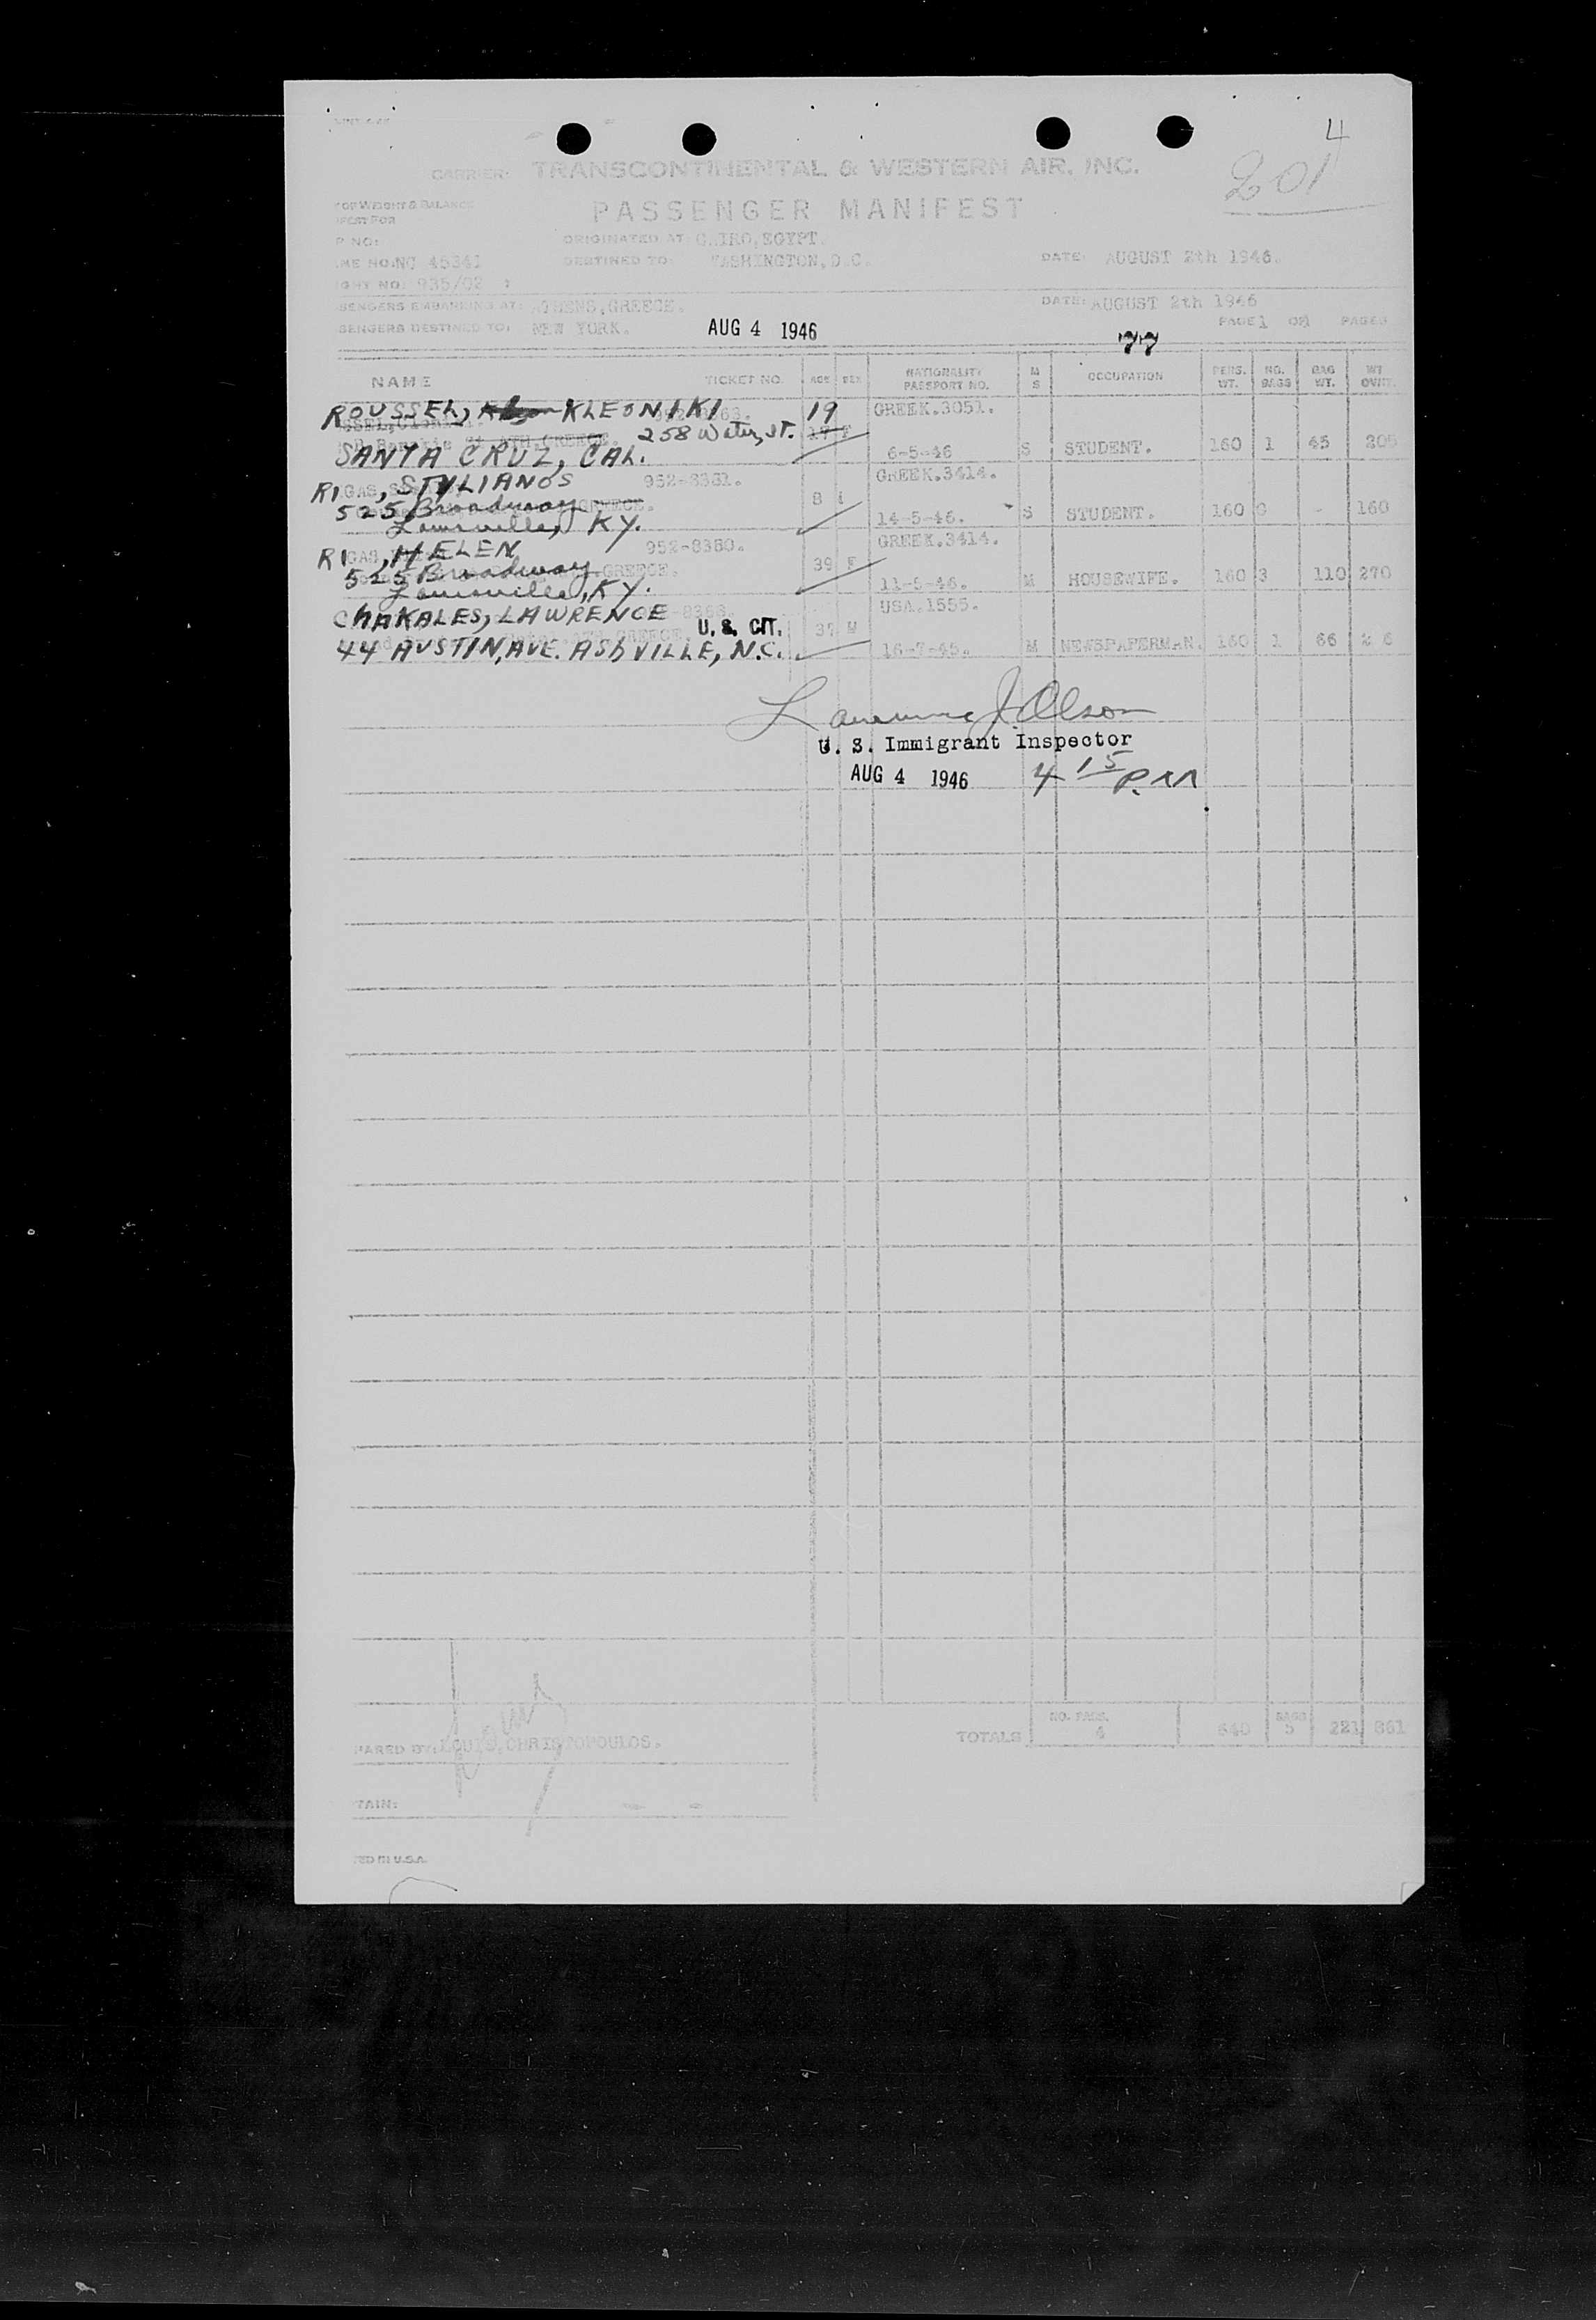 4
201
CARRIER: TRANSCONTINENTAL & WESTERN AIR, INC.
FOR WEIGHT & BALANCE
PASSENGER MANIFEST
P NO:
ORIGINATED AT: CAIRO,EGYPT.
NC 45341 DESTINED TO: WASHINGTON,D.C. DATE: AUGUST 2th 1946.
GHT NO: 935/02
SENGERS EMBARKING AT: ATHENS,GREECE. DATE: AUGUST 2th 1946
SENGERS DESTINED TO: NEW YORK. AUG 4 1946 PAGE 1 OF 1 PAGES
77
NAME TICKET NO. AGE SEX NATIONALITY PASSPORT NO. M S OCCUPATION PERS. WT. NO. BAGS BAG WT. WT
ROUSSEL, KLEONIKI 19 GREEK.3051.
ATH.GREECE. 258 Water, St. 17 F
SANTA CRUZ, CAL. 6-5-46 S STUDENT. 160 1 45 205
RIGAS, STYLIANOS 952-8381. GREEK.3414.
525 Broadway GREECE. 8
Louisville, KY. 14-5-46. S STUDENT. 160 0 - 160
RIGAS, HELEN 952-8380. GREEK.3414.
525 Broadway GREECE. 39 F
Louisville, KY. 11-5-46. M HOUSEWIFE. 160 3 110 270
ChAKALES, LAWRENCE USA.1555.
GREECE. U. S. CIT. 37 M
44 AUSTIN, AVE. AShVILLE, N.C. 16-7-45. M NEWSPAPERMAN. 160 1 66
Lawrence J. Olson
U. S. Immigrant Inspector
AUG 4 1946 4 15 P.M
NO. PASS. BAGS
PARED BY: LOUIS,CHRISTOPOULOS. TOTALS 4 640 5 221 861
TAIN:
TED IN U.S.A.